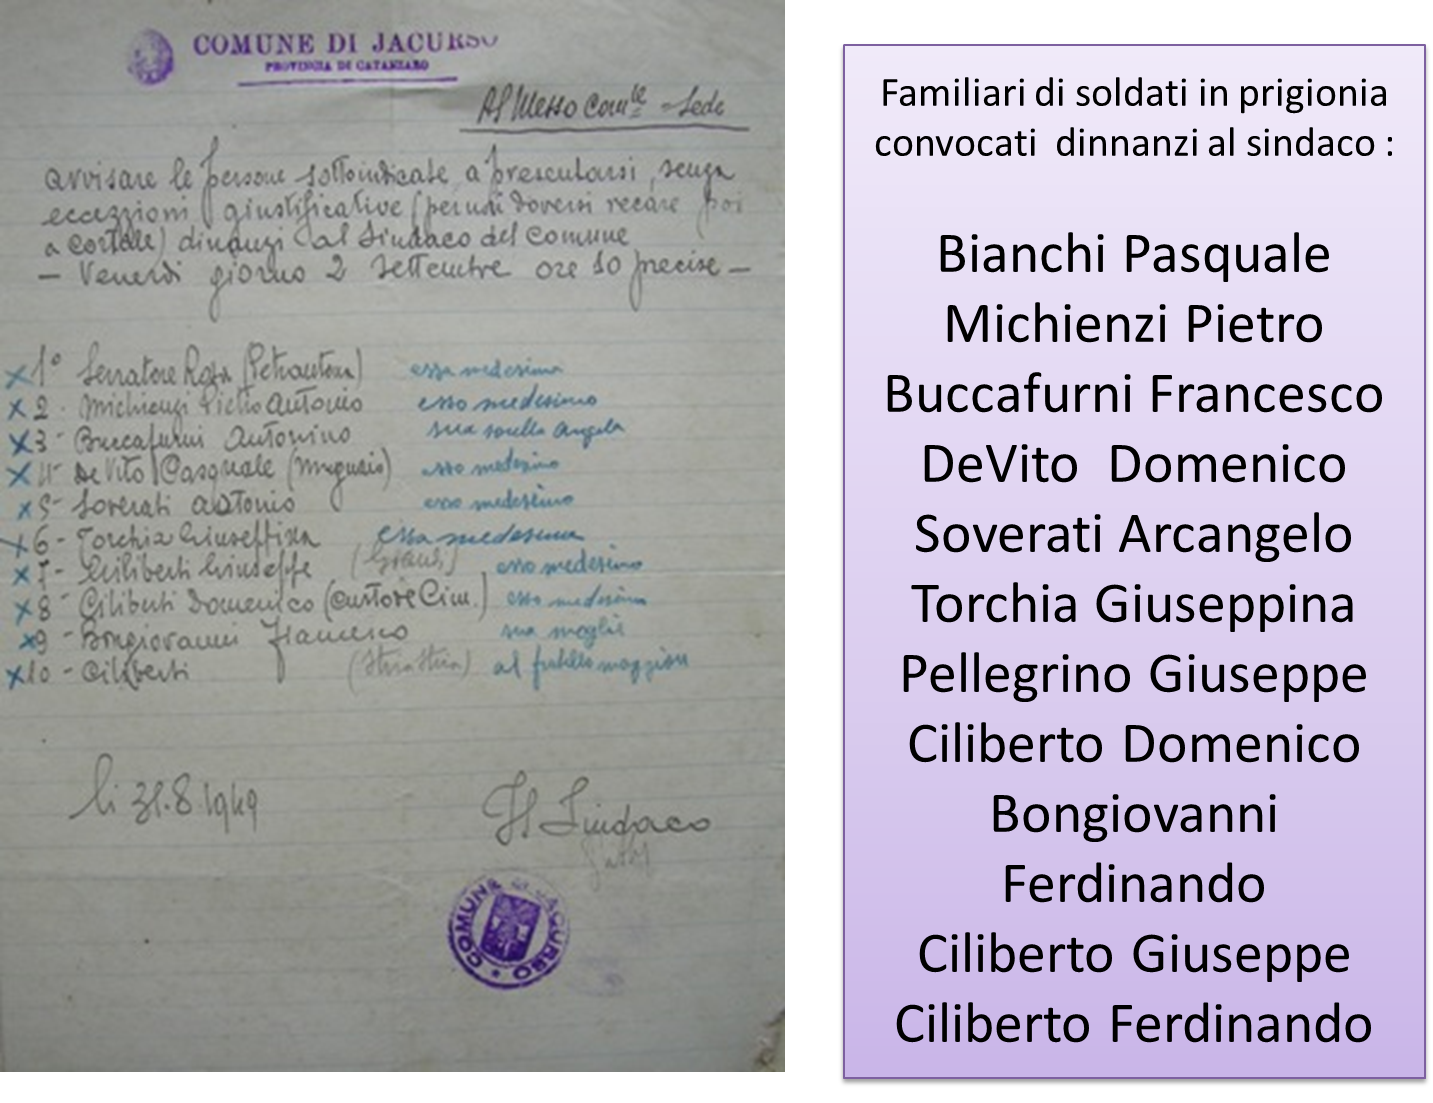 COMUNE DI JACURSO
PROVINCIA DI CATANZARO
Al Messo Com.le - Sede
avvisare le persone sottoindicate, a presentarsi, senza
eccezzioni giustificative (perché doversi recare poi
a Cortale) dinanzi al Sindaco del Comune
- Venerdì giorno 2 Settembre ore 10 precise -
1° Serratore Rosa essa medesima
2- Michienzi Pietro Antonio esso medesimo
3- Buccafurni Antonino sua sorella Angela
4- De Vito Pasquale esso medesimo
5- Soverati Antonio esso medesimo
6- Torchia Giuseppina essa medesima
7- Ciliberti Giuseppe esso medesimo
8- Ciliberti Domenico (Custore Cim.) esso medesimo
9- Bongiovanni Francesco sua moglie
10- Ciliberti al fratello maggiore
li 31.8.1949
Il Sindaco
COMUNE DI JACURSO
Familiari di soldati in prigionia
convocati dinnanzi al sindaco :
Bianchi Pasquale
Michienzi Pietro
Buccafurni Francesco
DeVito Domenico
Soverati Arcangelo
Torchia Giuseppina
Pellegrino Giuseppe
Ciliberto Domenico
Bongiovanni
Ferdinando
Ciliberto Giuseppe
Ciliberto Ferdinando